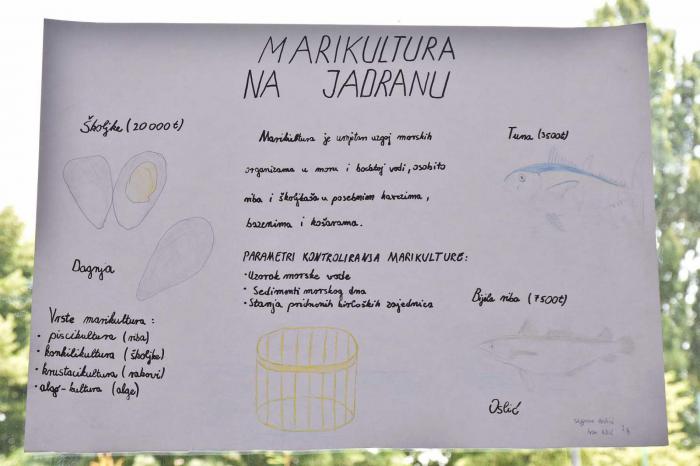 MARIKULTURA
NA JADRANU
Školjke (20 000 t)
Dagnja
Vrste marikultura :
• piscikultura (riba)
• konkilikultura (školjke)
• krustacikultura (rakovi)
• algo-kultura (alge)
Marikultura je umjetan uzgoj morskih
organizama u moru i vodi, osobito
riba i školjkaša u posebnim kavezima,
bazenima i košarama.
PARAMETRI KONTROLIRANJA MARIKULTURE:
• Uzorak morske vode
• Sedimenti morskog dna
• Stanja pridnenih bioloških zajednica
Tuna (3500t)
Bijela riba (7500t)
Oslić